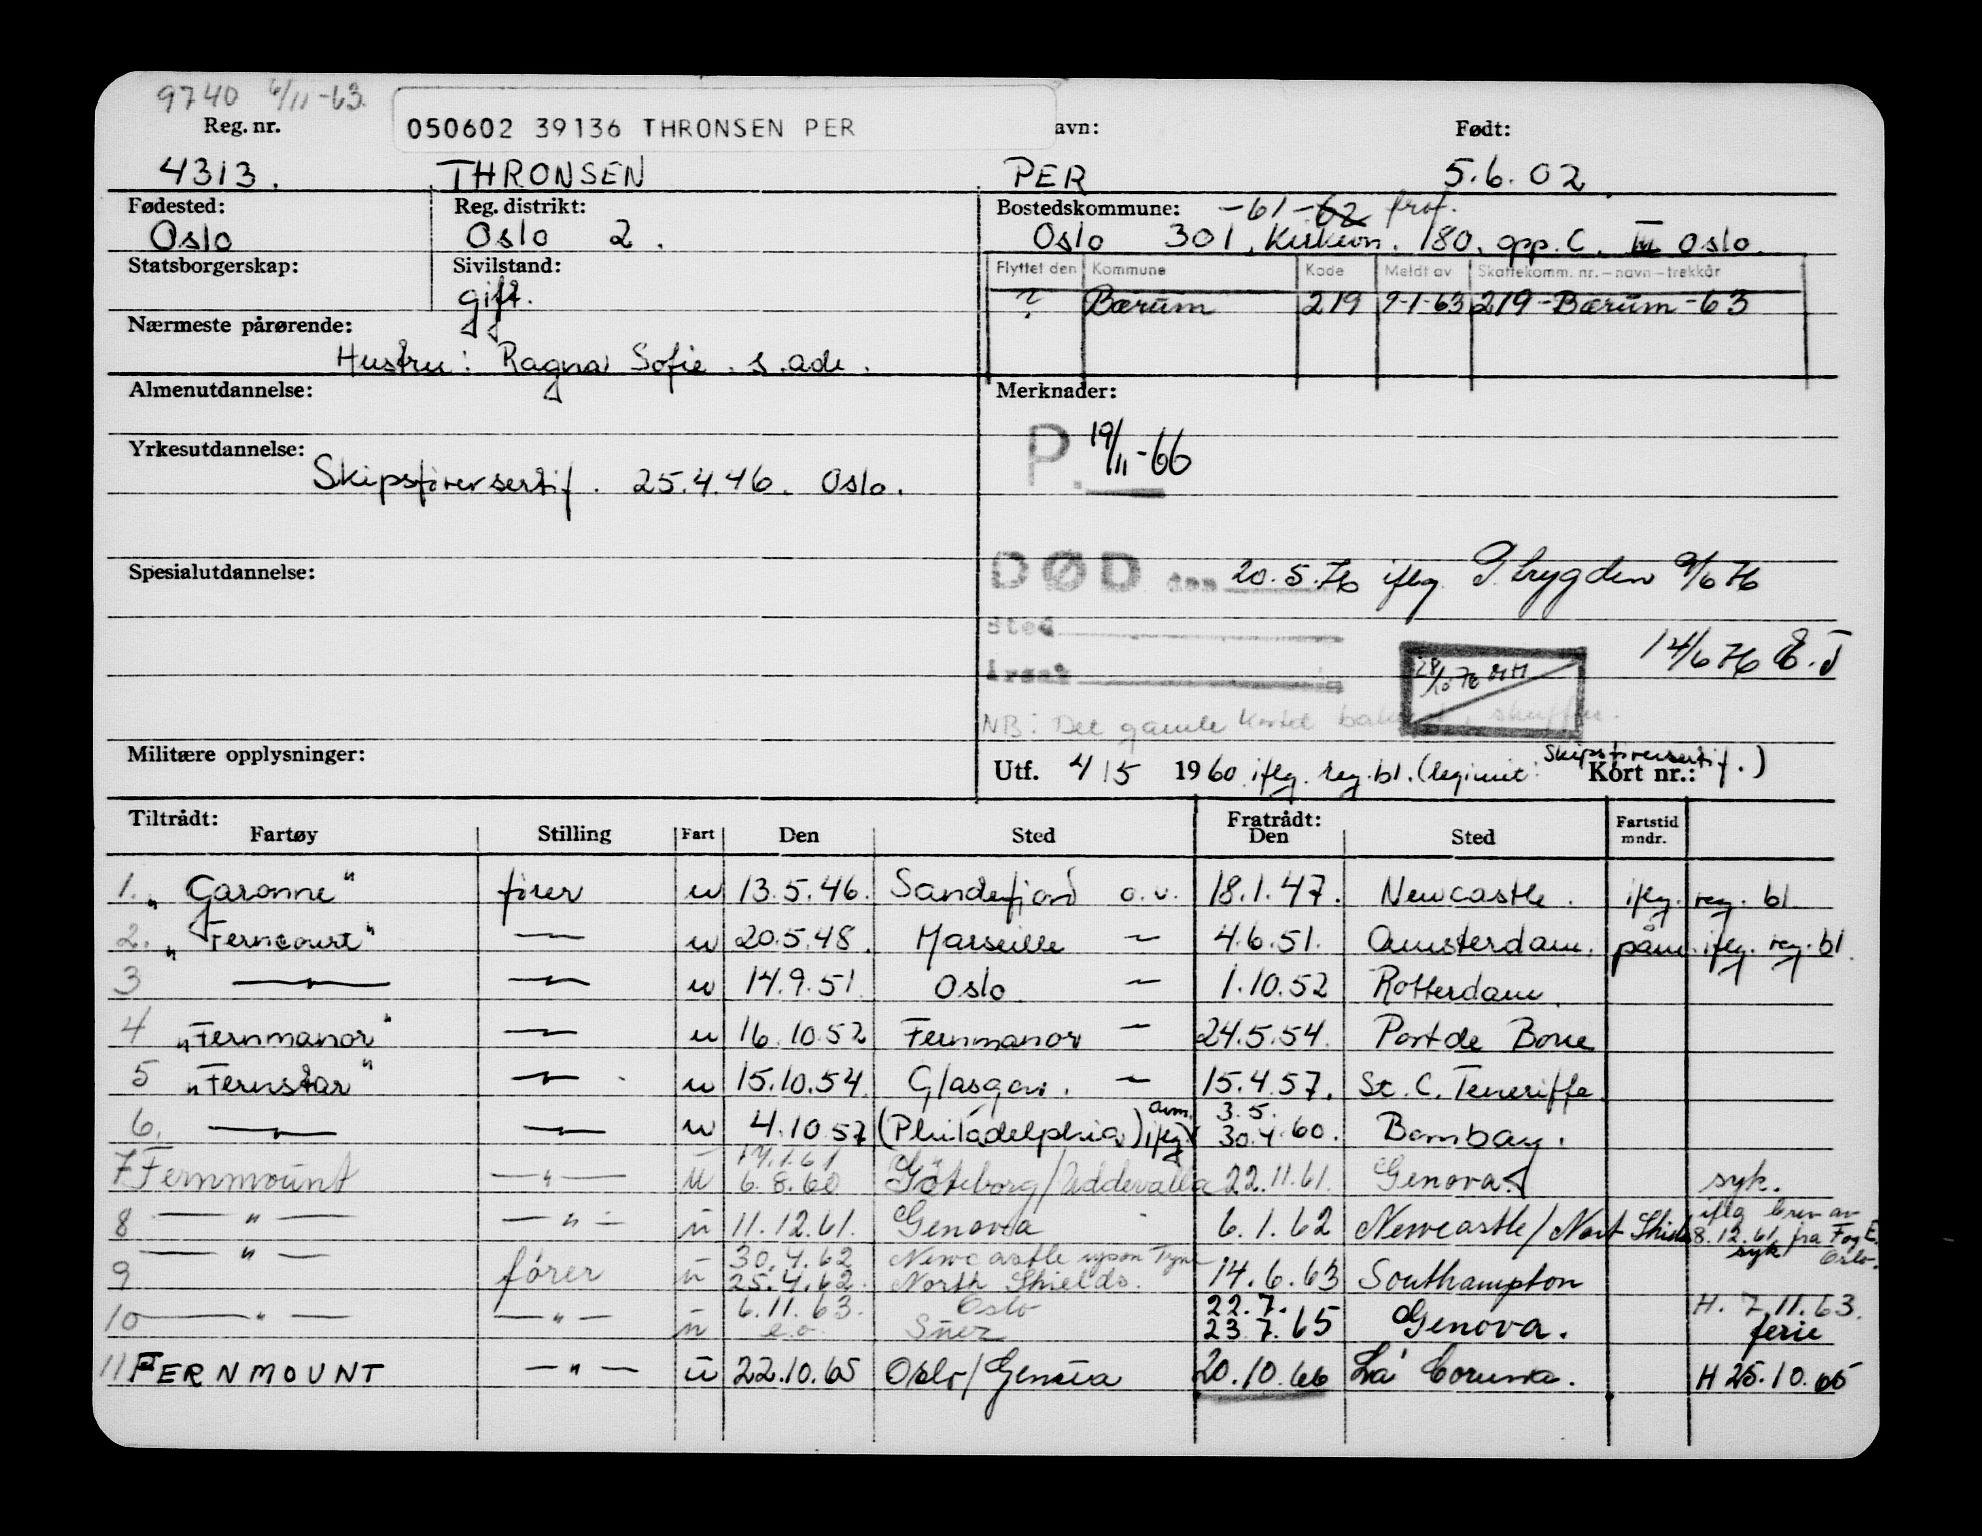 9740 6/11-63.
Reg. nr. 050602 39136 THRONSEN PER avn: Født:
4313. THRONSEN PER 5.6.02.
Fødested: Reg. distrikt: Bostedskommune: -61-62 frof.
Oslo Oslo 2. Oslo 301, Kirkevn. 180, opp. C. III Oslo.
Statsborgerskap: Sivilstand: Flyttet den Kommune Kode Meldt av Skattekomm. nr. - navn - trekkår
gift. ? Bærum 219 9-1-63 219-Bærum-63
Nærmeste pårørende:
Hustru: Ragna Sofie. s.adr.
Almenutdannelse: Merknader:
P. 19/11-66
Yrkesutdannelse:
Skipsførersertif. 25.4.46. Oslo.
Spesialutdannelse:
DØD den 20.5.76 iflg. P.trygden 9/6 76
Sted
14/6 76 E.J
Årsak
28/10 76
NB: Det gamle kortet i skuffen.
Militære opplysninger:
Utf. 4/5 1960 iflg. reg.bl. (legimit: Skipsførersertif.) Kort nr.:
Tiltrådt: Fratrådt:
Fartøy Stilling Fart Den Sted Den Sted Fartstid mndr.
1. "Garonne" fører u 13.5.46. Sandefjord o.v. 18.1.47. Newcastle. iflg. reg. bl.
2. "Ferncourt" — u 20.5.48. Marseille — 4.6.51. Amsterdam. påm. iflg. reg. bl.
3 —"— — u 14.9.51 Oslo — 1.10.52 Rotterdam.
4 "Fernmanor" — u 16.10.52 Fernmanor — 24.5.54. Port de Boue
5 "Fernstar" — u 15.10.54. Glasgow. — 15.4.57. St. C. Teneriffe.
6. —"— — u 4.10.57 (Philadelphia) iflg. avm. 3.5. 30.4.60. Bombay.
14.1.61
7 Fernmount —"— u 6.8.60 Göteborg/Uddevalla 22.11.61. Genova syk.
8 —"— —"— u 11.12.61. Genova 6.1.62 Newcastle/Nort Shields iflg brev av 8.12.61 fra Fog E. Oslo.
syk
30.4.62 Newcastle upon Tyne
9 —"— fører u 25.4.62. North Shields. 14.6.63 Southampton
6.11.63. Oslo 22.7. H. 7.11.63.
10 —"— —"— u e.o. Suez 23.7.65 Genova. ferie
11 FERNMOUNT —"— u 22.10.65 Oslo/Genova 20.10.66 La Coruna. H 25.10.65